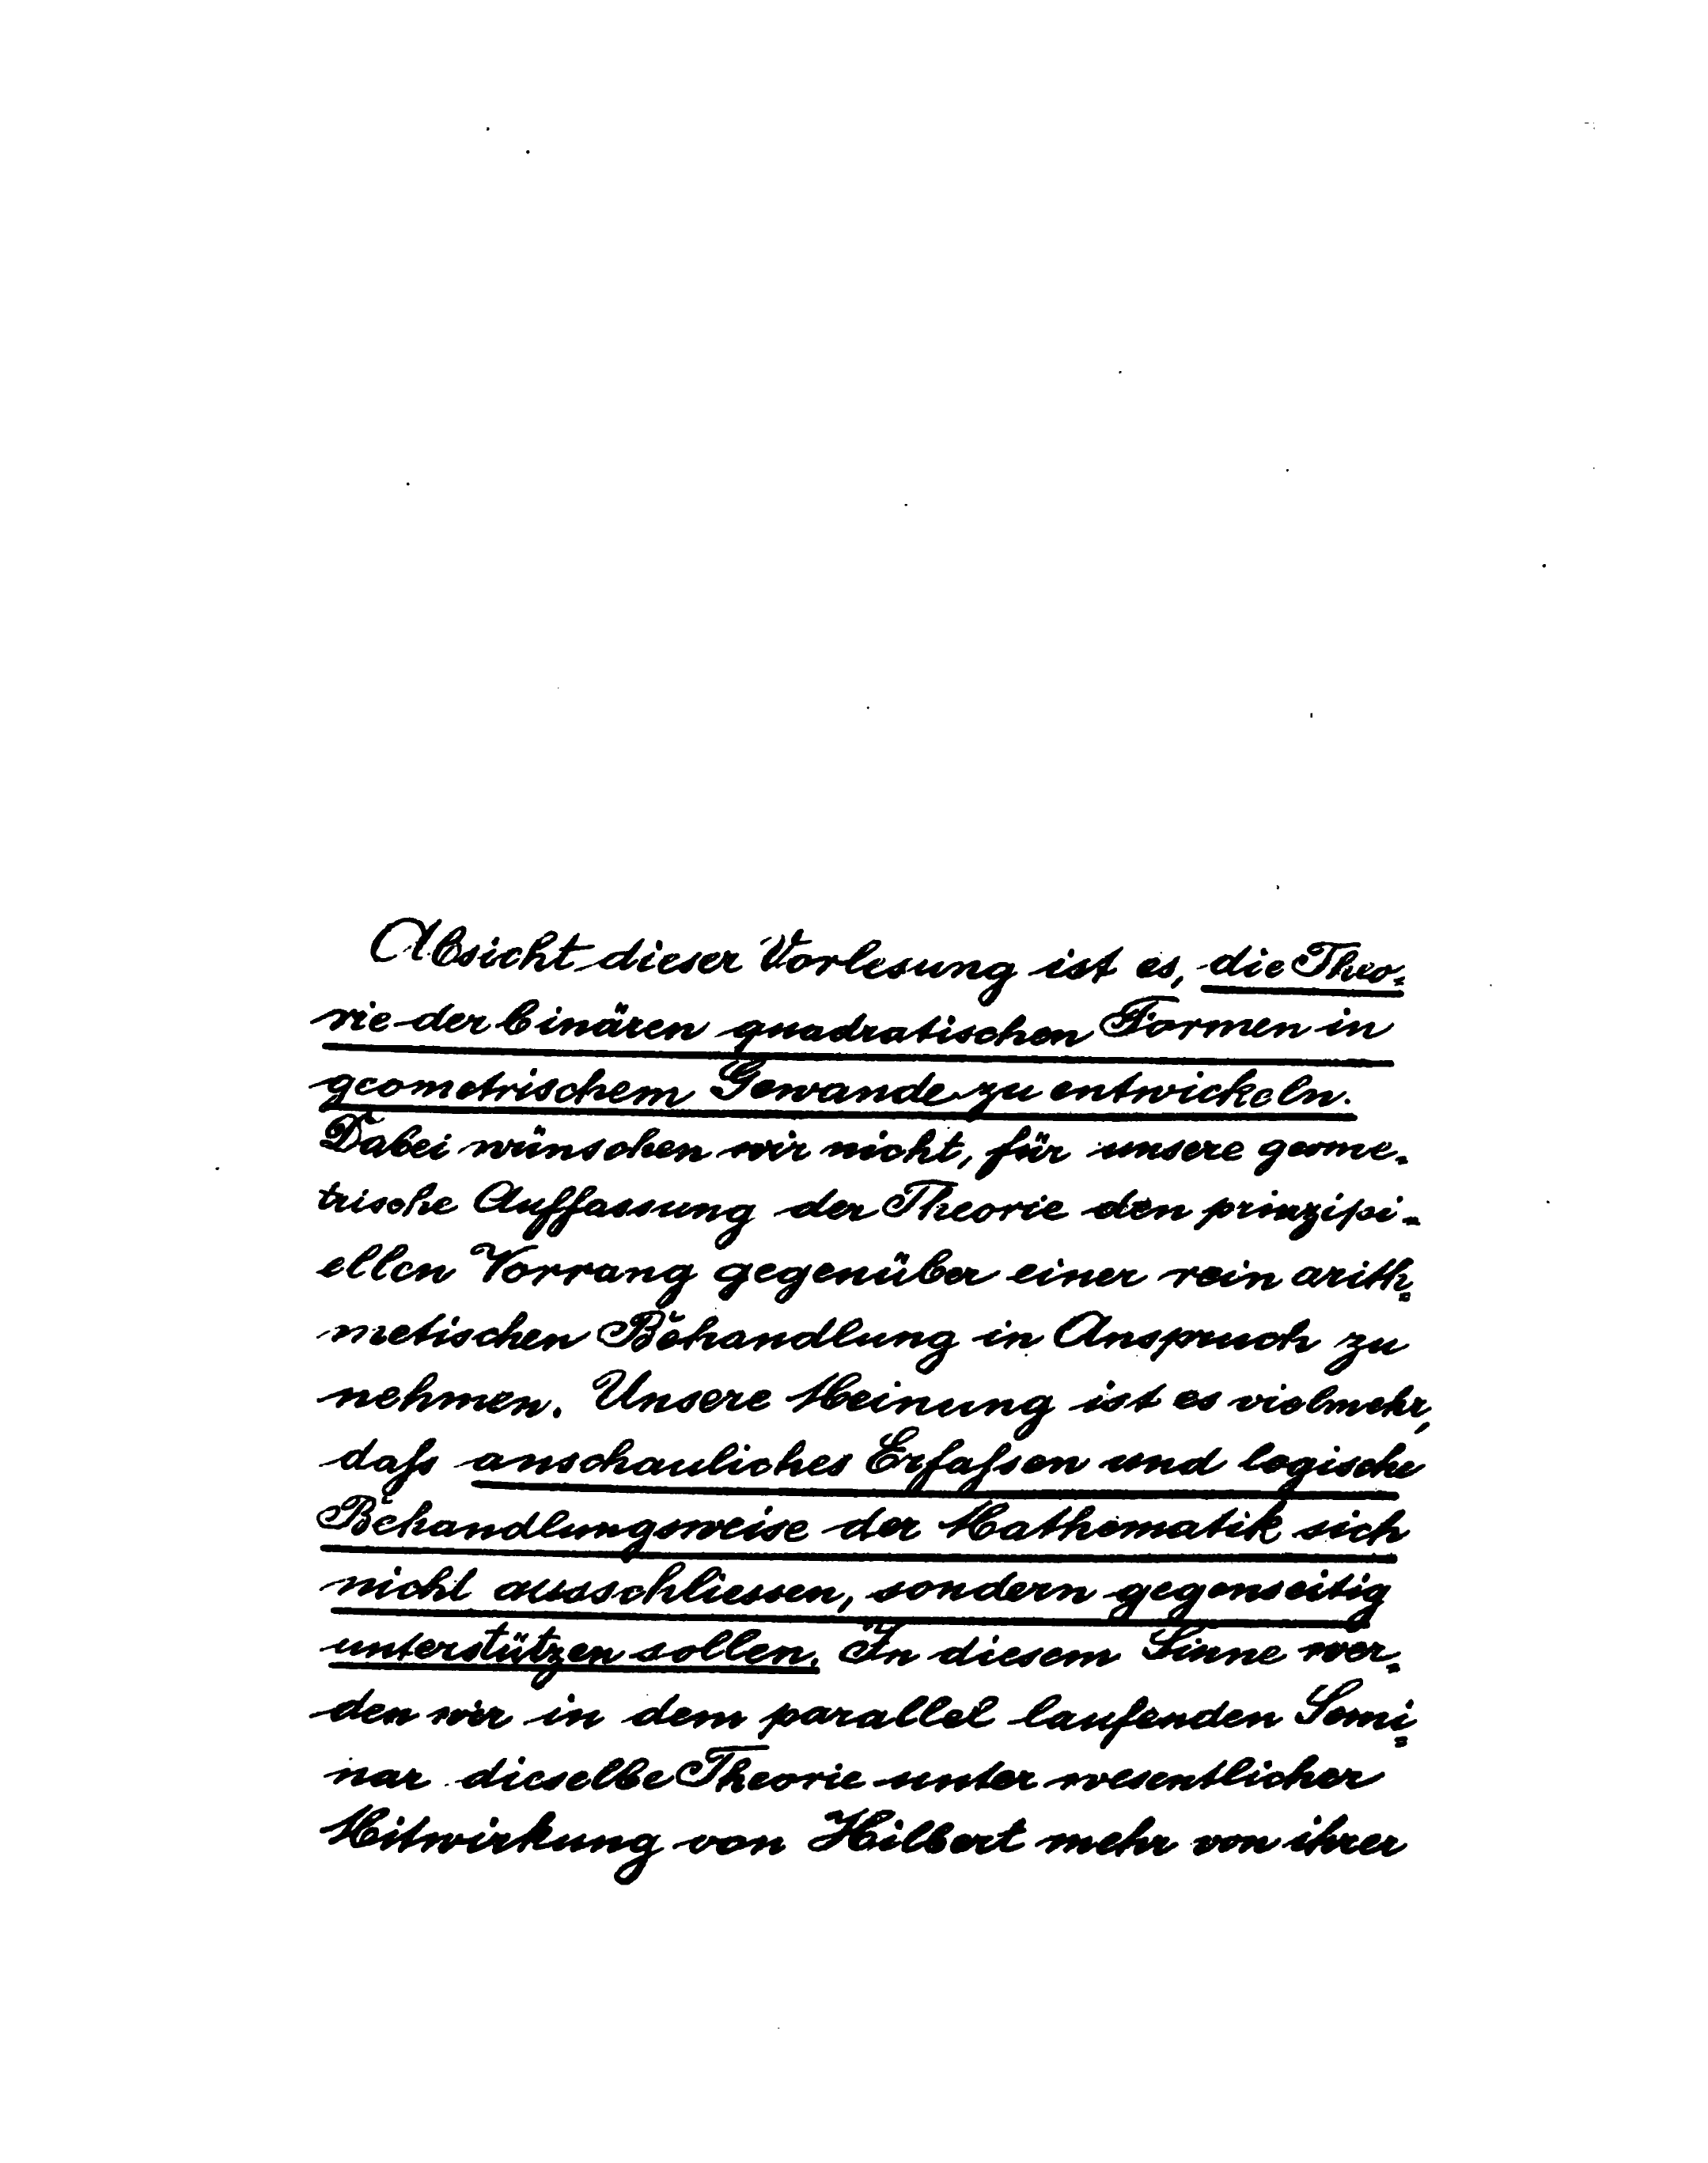 Absicht dieser Vorlesung ist es, die Theo-
rie der binären quadratischen Formen in
geometrischem Gewande zu entwickeln.
Dabei wünschen wir nicht, für unsere geome-
trische Auffassung der Theorie den prinzipi-
ellen Vorrang gegenüber einer rein arith-
metischen Behandlung in Anspruch zu
nehmen. Unsere Meinung ist es vielmehr,
dafs anschauliches Erfafsen und logische
Behandlungsweise der Mathematik sich
nicht ausschliessen, sondern gegenseitig
unterstützen sollen. In diesem Sinne wer-
den wir in dem parallel laufenden Semi-
nar dieselbe Theorie unter wesentlicher
Mitwirkung von Hilbert mehr von ihrer